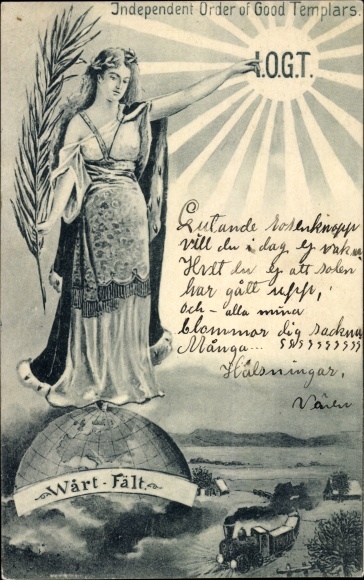 Independent Order of Good Templars.
I.O.G.T.
Lutande rosenknopp
vill du i dag ej vakna
Hvet du ej att solen
har gått upp,
och - alla mina
blommor dig sackna
Många...
Hälsningar.
Wårt - Fält.